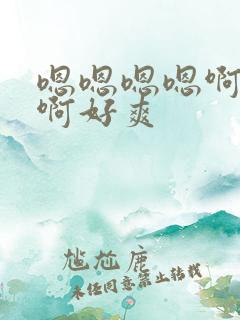 嗯嗯嗯嗯啊
啊好爽
尴尬鹿
未经同意禁止转载